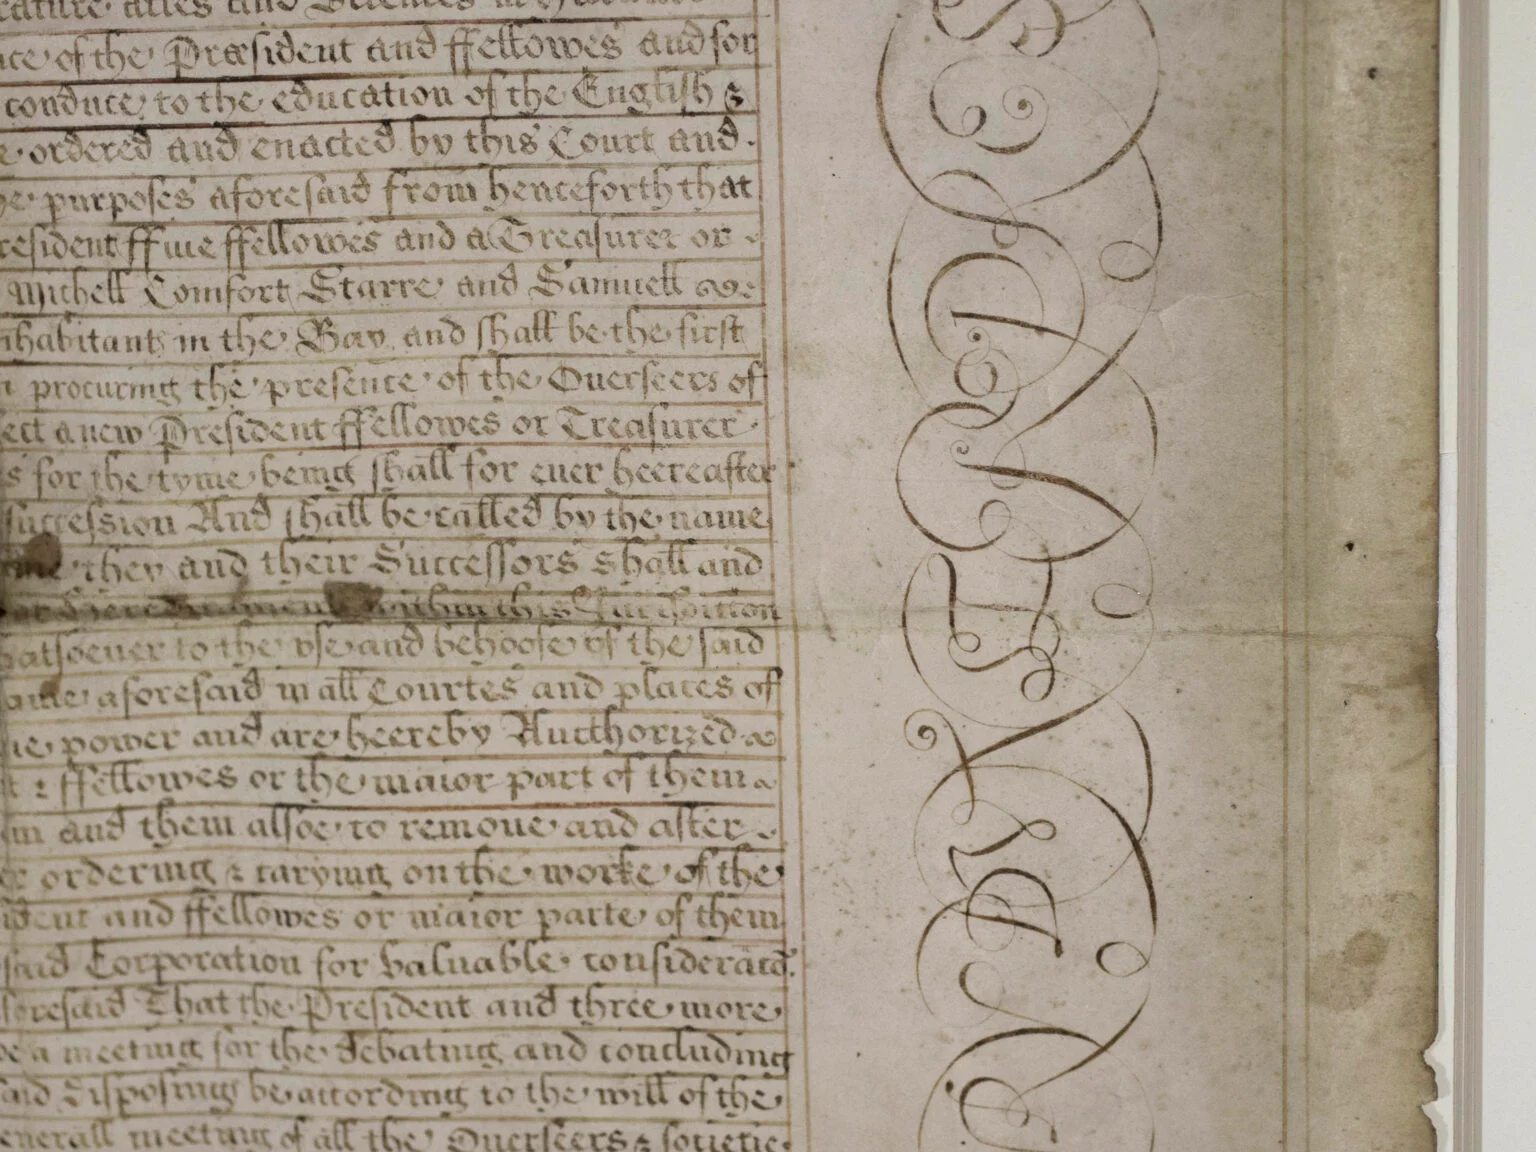 rature artes and Sciences in
ce of the Præsident and ffellowes and for
conduce to the education of the English &
ordered and enacted by this Court and
purposes aforesaid from henceforth that
resident ffiue ffellowes and a Treasurer or
Michell Comfort Starre and Samuell
nhabitants in the Bay, and shall be the first
procuring the presence of the Ouerseers of
ect a new President ffellowes or Treasurer
s for the tyme being shall for euer heereafter
succession And shall be called by the name
they and their Successors shall and
within this Jurisdiction
hatsoeuer to the vse and behoofe of the said
ame aforesaid in all Courtes and places of
power and are heereby Aucthorized
ffellowes or the maior part of them
and them allsoe to remoue and after
ordering & carying on the worke of the
ident and ffellowes or maior parte of them
said Corporation for valuable consideratō.
foresaid That the President and three more
a meeting for the debating and concluding
said disposing be according to the will of the
enerall meeting of all the Ouerseers & societie